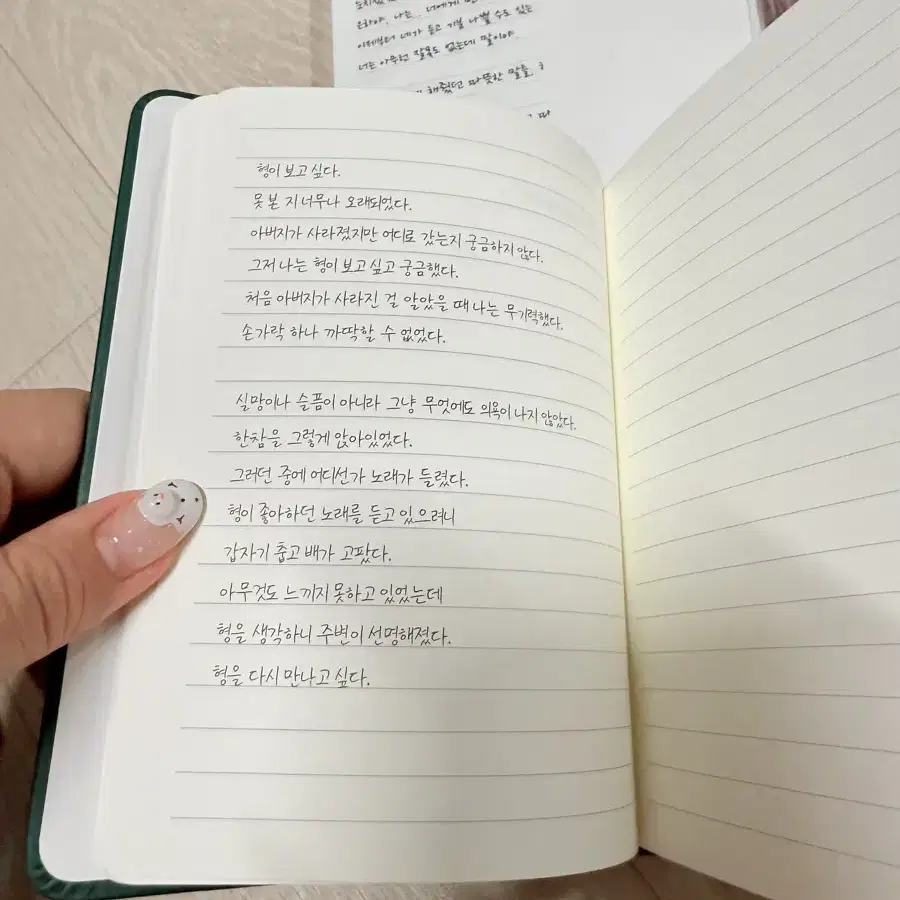 은하야. 나는.. 너에게
이제부터 네가 듣고 기분 나쁠 수도 있는
너는 아무런 잘못도 없는데 말이야.
해줬던 따뜻한 말들
형이 보고 싶다.
못 본 지 너무나 오래되었다.
아버지가 사라졌지만 어디로 갔는지 궁금하지 않다.
그저 나는 형이 보고 싶고 궁금했다.
처음 아버지가 사라진 걸 알았을 때 나는 무기력했다.
손가락 하나 까딱할 수 없었다.
실망이나 슬픔이 아니라 그냥 무엇에도 의욕이 나지 않았다.
한참을 그렇게 앉아있었다.
그러던 중에 어디선가 노래가 들렸다.
형이 좋아하던 노래를 듣고 있으려니
갑자기 춥고 배가 고팠다.
아무것도 느끼지 못하고 있었는데
형을 생각하니 주변이 선명해졌다.
형을 다시 만나고 싶다.